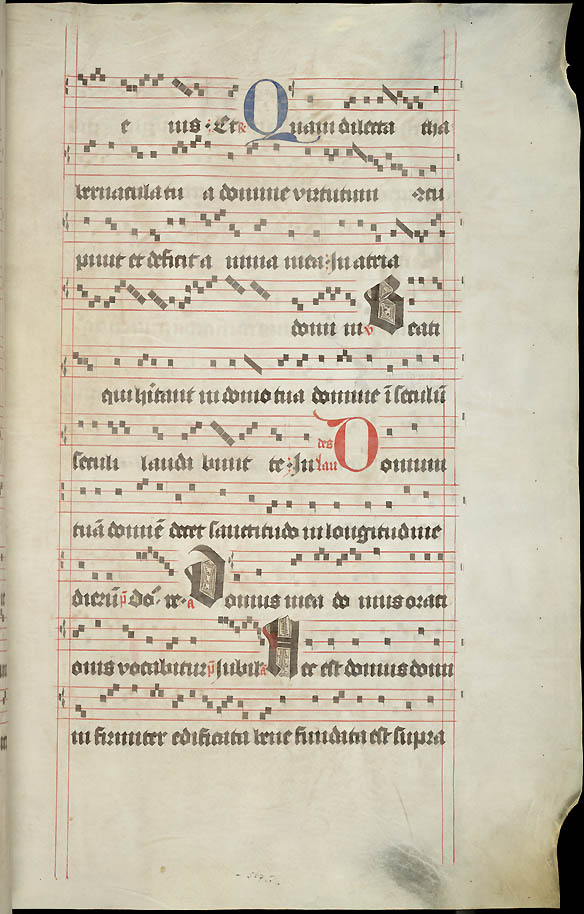 e ius : Et R Quam dilecta tha
bernacula tu a domine virtutum
piunt et deficit a nima mea : In atria
domi ni v Beati
qui hītant in domo tua domine ī seculū
seculi laudi bunt te : In des lau Domum
tuā dominē decet sanctitudo in longitudine
dierū p̄ dō⁊ re a Domus mea do mus orati
onis vocabitur p̄ Jubil a Hec est domus domi
ni firmiter edificata bene fundata est supra